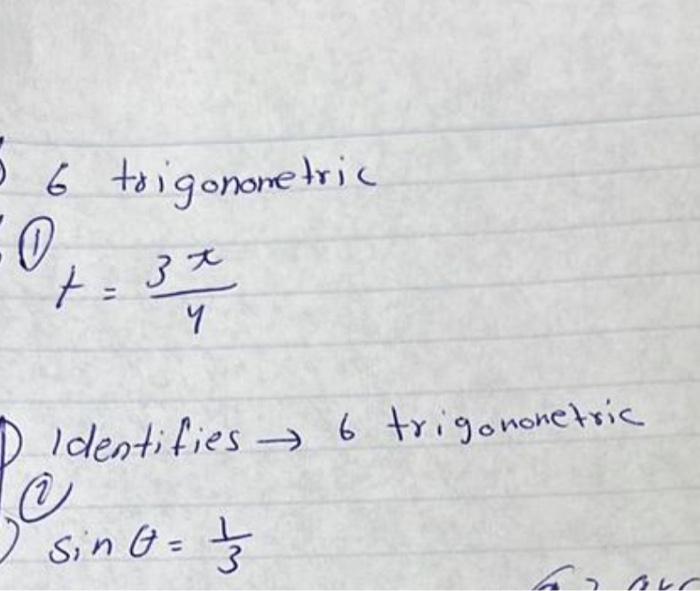 6 trigonometric
①
t = 3π/4
Identifies → 6 trigonometric
②
sin θ = 1/3